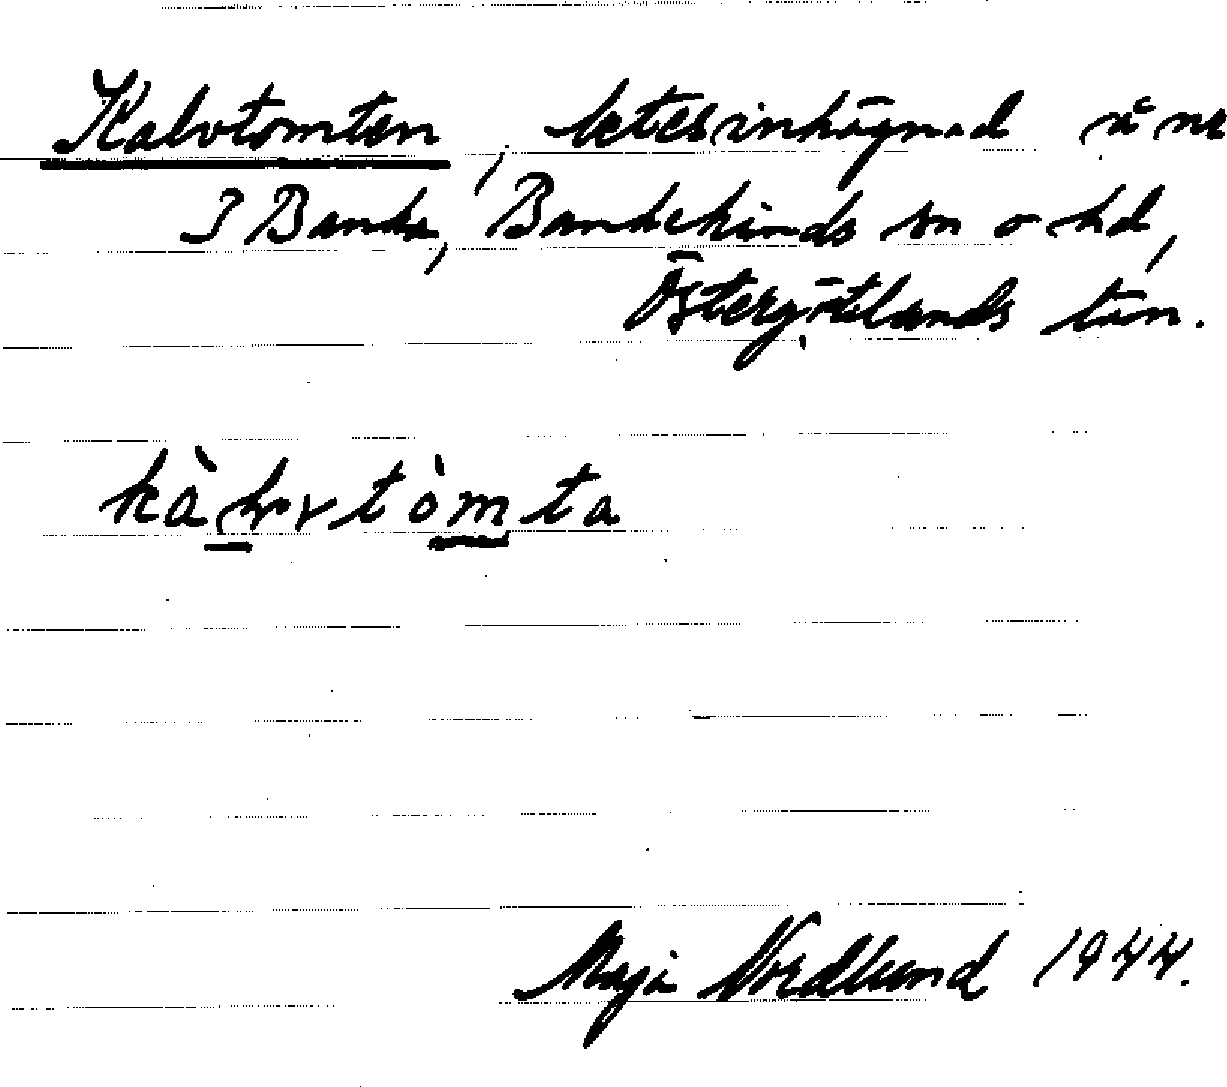 Kalvtomten, beteshignad å nr
3 Banda, Bandekinds sn o hd,
Östergötlands län.
kàḷvtòmta
Maja Nordlund 1944.